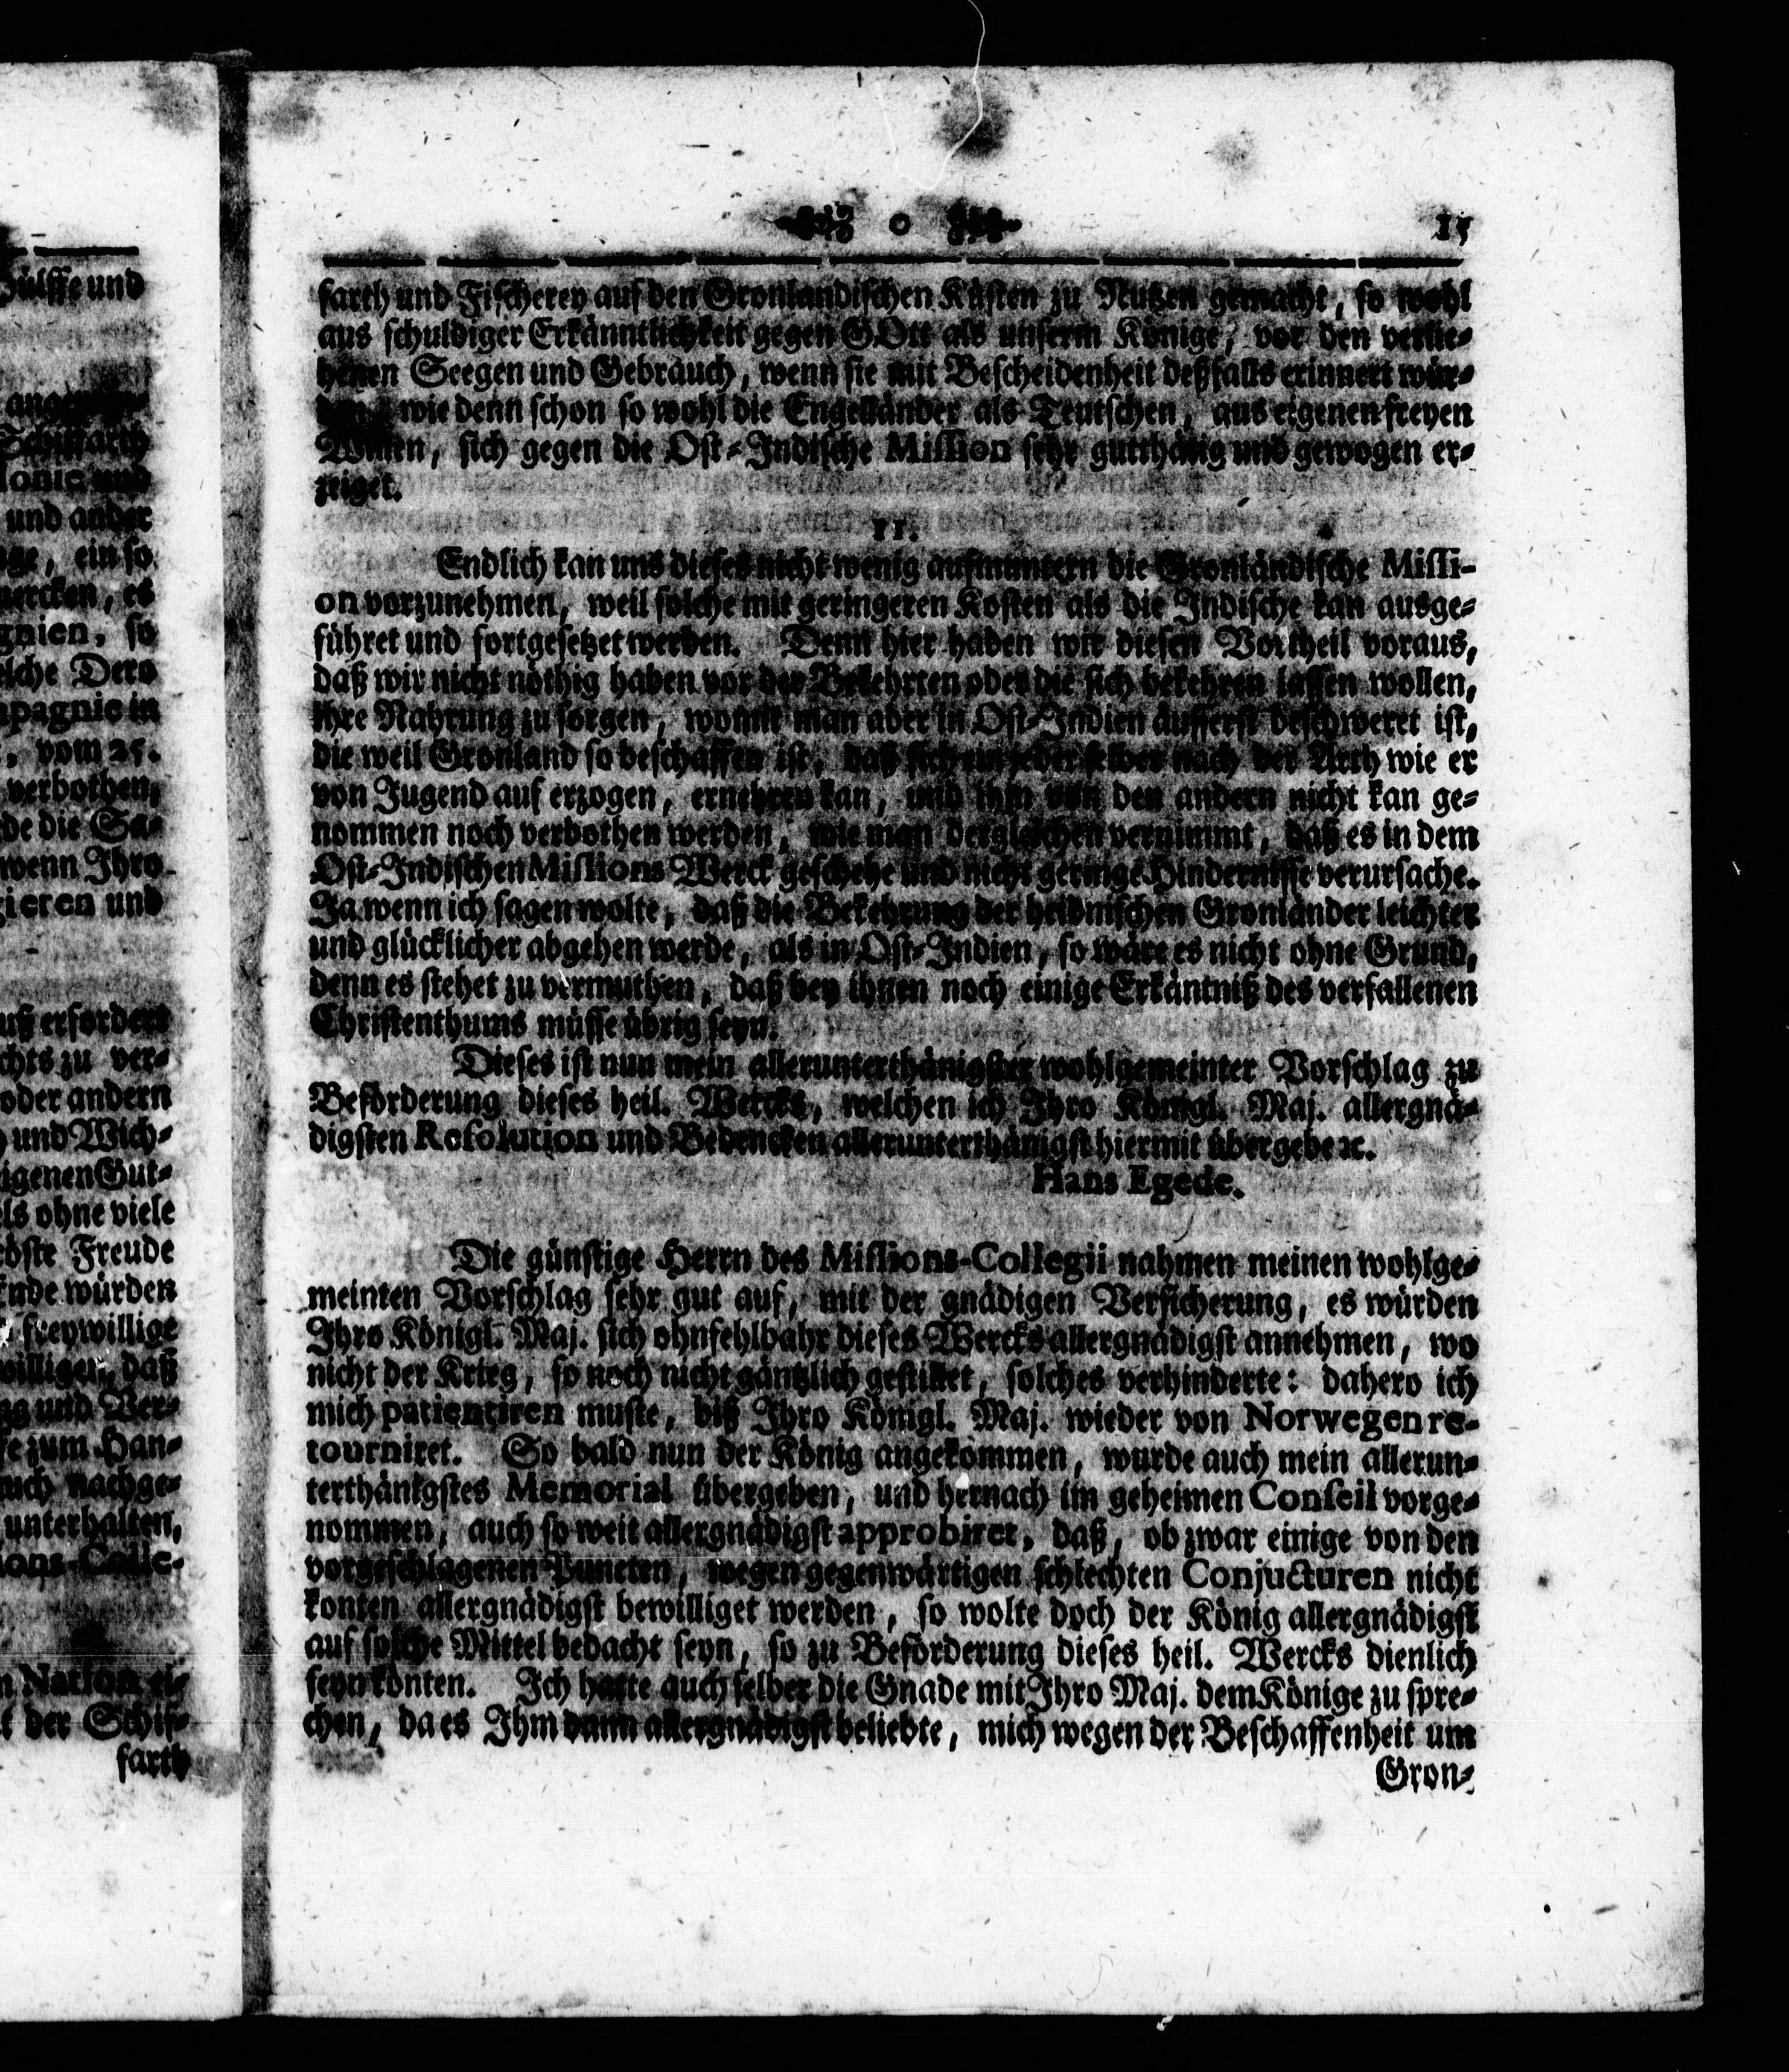 15
farth und Fischerey auf den Gronländischen Küsten zu Nutzen gemacht, so wohl
aus schuldiger Erkänntlichkeit gegen GOtt als unserm Könige, vor den verlie-
henen Seegen und Gebrauch, wenn sie mit Bescheidenheit deßfalls erinnert wür-
den, wie denn schon so wohl die Engelländer als Teutschen, aus eigenen freyen
Willen, sich gegen die Ost-Indische Mission sehr gutthätig und gewogen er-
zeiget.
11.
Endlich kan uns dieses nicht wenig aufmuntern die Gronländische Missi-
on vorzunehmen, weil solche mit geringeren Kosten als die Indische kan ausge-
führet und fortgesetzet werden. Denn hier haben wir diesen Vortheil voraus,
daß wir nicht nöthig haben vor der Bekehrten oder die sich bekehren lassen wollen,
ihre Nahrung zu sorgen, womit man aber in Ost-Indien äusserst beschweret ist,
die weil Gronland so beschaffen ist, daß sich ein jeder selber nach der Arth wie er
von Jugend auf erzogen, ernehren kan, und ihm von den andern nicht kan ge-
nommen noch verbothen werden, wie man dergleichen vernimmt, daß es in dem
Ost-Indischen Missions Werck geschehe und nicht geringe Hindernisse verursache.
Ja wenn ich sagen wolte, daß die Bekehrung der heidnischen Gronländer leichter
und glücklicher abgehen werde, als in Ost-Indien, so wäre es nicht ohne Grund,
denn es stehet zu vermuthen, daß bey ihnen noch einige Erkäntniß des verfallenen
Christenthums müsse übrig seyn.
Dieses ist nun mein allerunterthänigster wohlgemeinter Vorschlag zu
Beförderung dieses heil. Wercks, welchen ich Ihro Königl. Maj. allergnä-
digsten Resolution und Bedencken allerunterthänigst hiermit übergebe ꝛc.
Hans Egede.
Die günstige Herrn des Missions-Collegii nahmen meinen wohlge-
meinten Vorschlag sehr gut auf, mit der gnädigen Versicherung, es würden
Ihro Königl. Maj. sich ohnfehlbahr dieses Wercks allergnädigst annehmen, wo
nicht der Krieg, so noch nicht gäntzlich gestillet, solches verhinderte: dahero ich
mich patientiren muste, biß Ihro Königl. Maj. wieder von Norwegen re-
tourniret. So bald nun der König angekommen, wurde auch mein allerun-
terthänigstes Memorial übergeben, und hernach im geheimen Conseil vorge-
nommen, auch so weit allergnädigst approbiret, daß, ob zwar einige von den
vorgeschlagenen Puncten, wegen gegenwärtigen schlechten Conjucturen nicht
konten allergnädigst bewilliget werden, so wolte doch der König allergnädigst
auf solche Mittel bedacht seyn, so zu Beförderung dieses heil. Wercks dienlich
seyn könten. Ich hatte auch selber die Gnade mit Ihro Maj. dem Könige zu spre-
chen, da es Ihm dann allergnädigst beliebte, mich wegen der Beschaffenheit um
Gron-